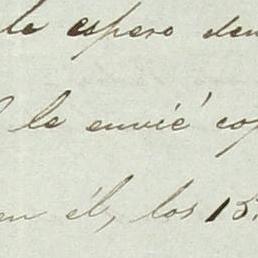 la espero den
le envié cop
en él, los 15.